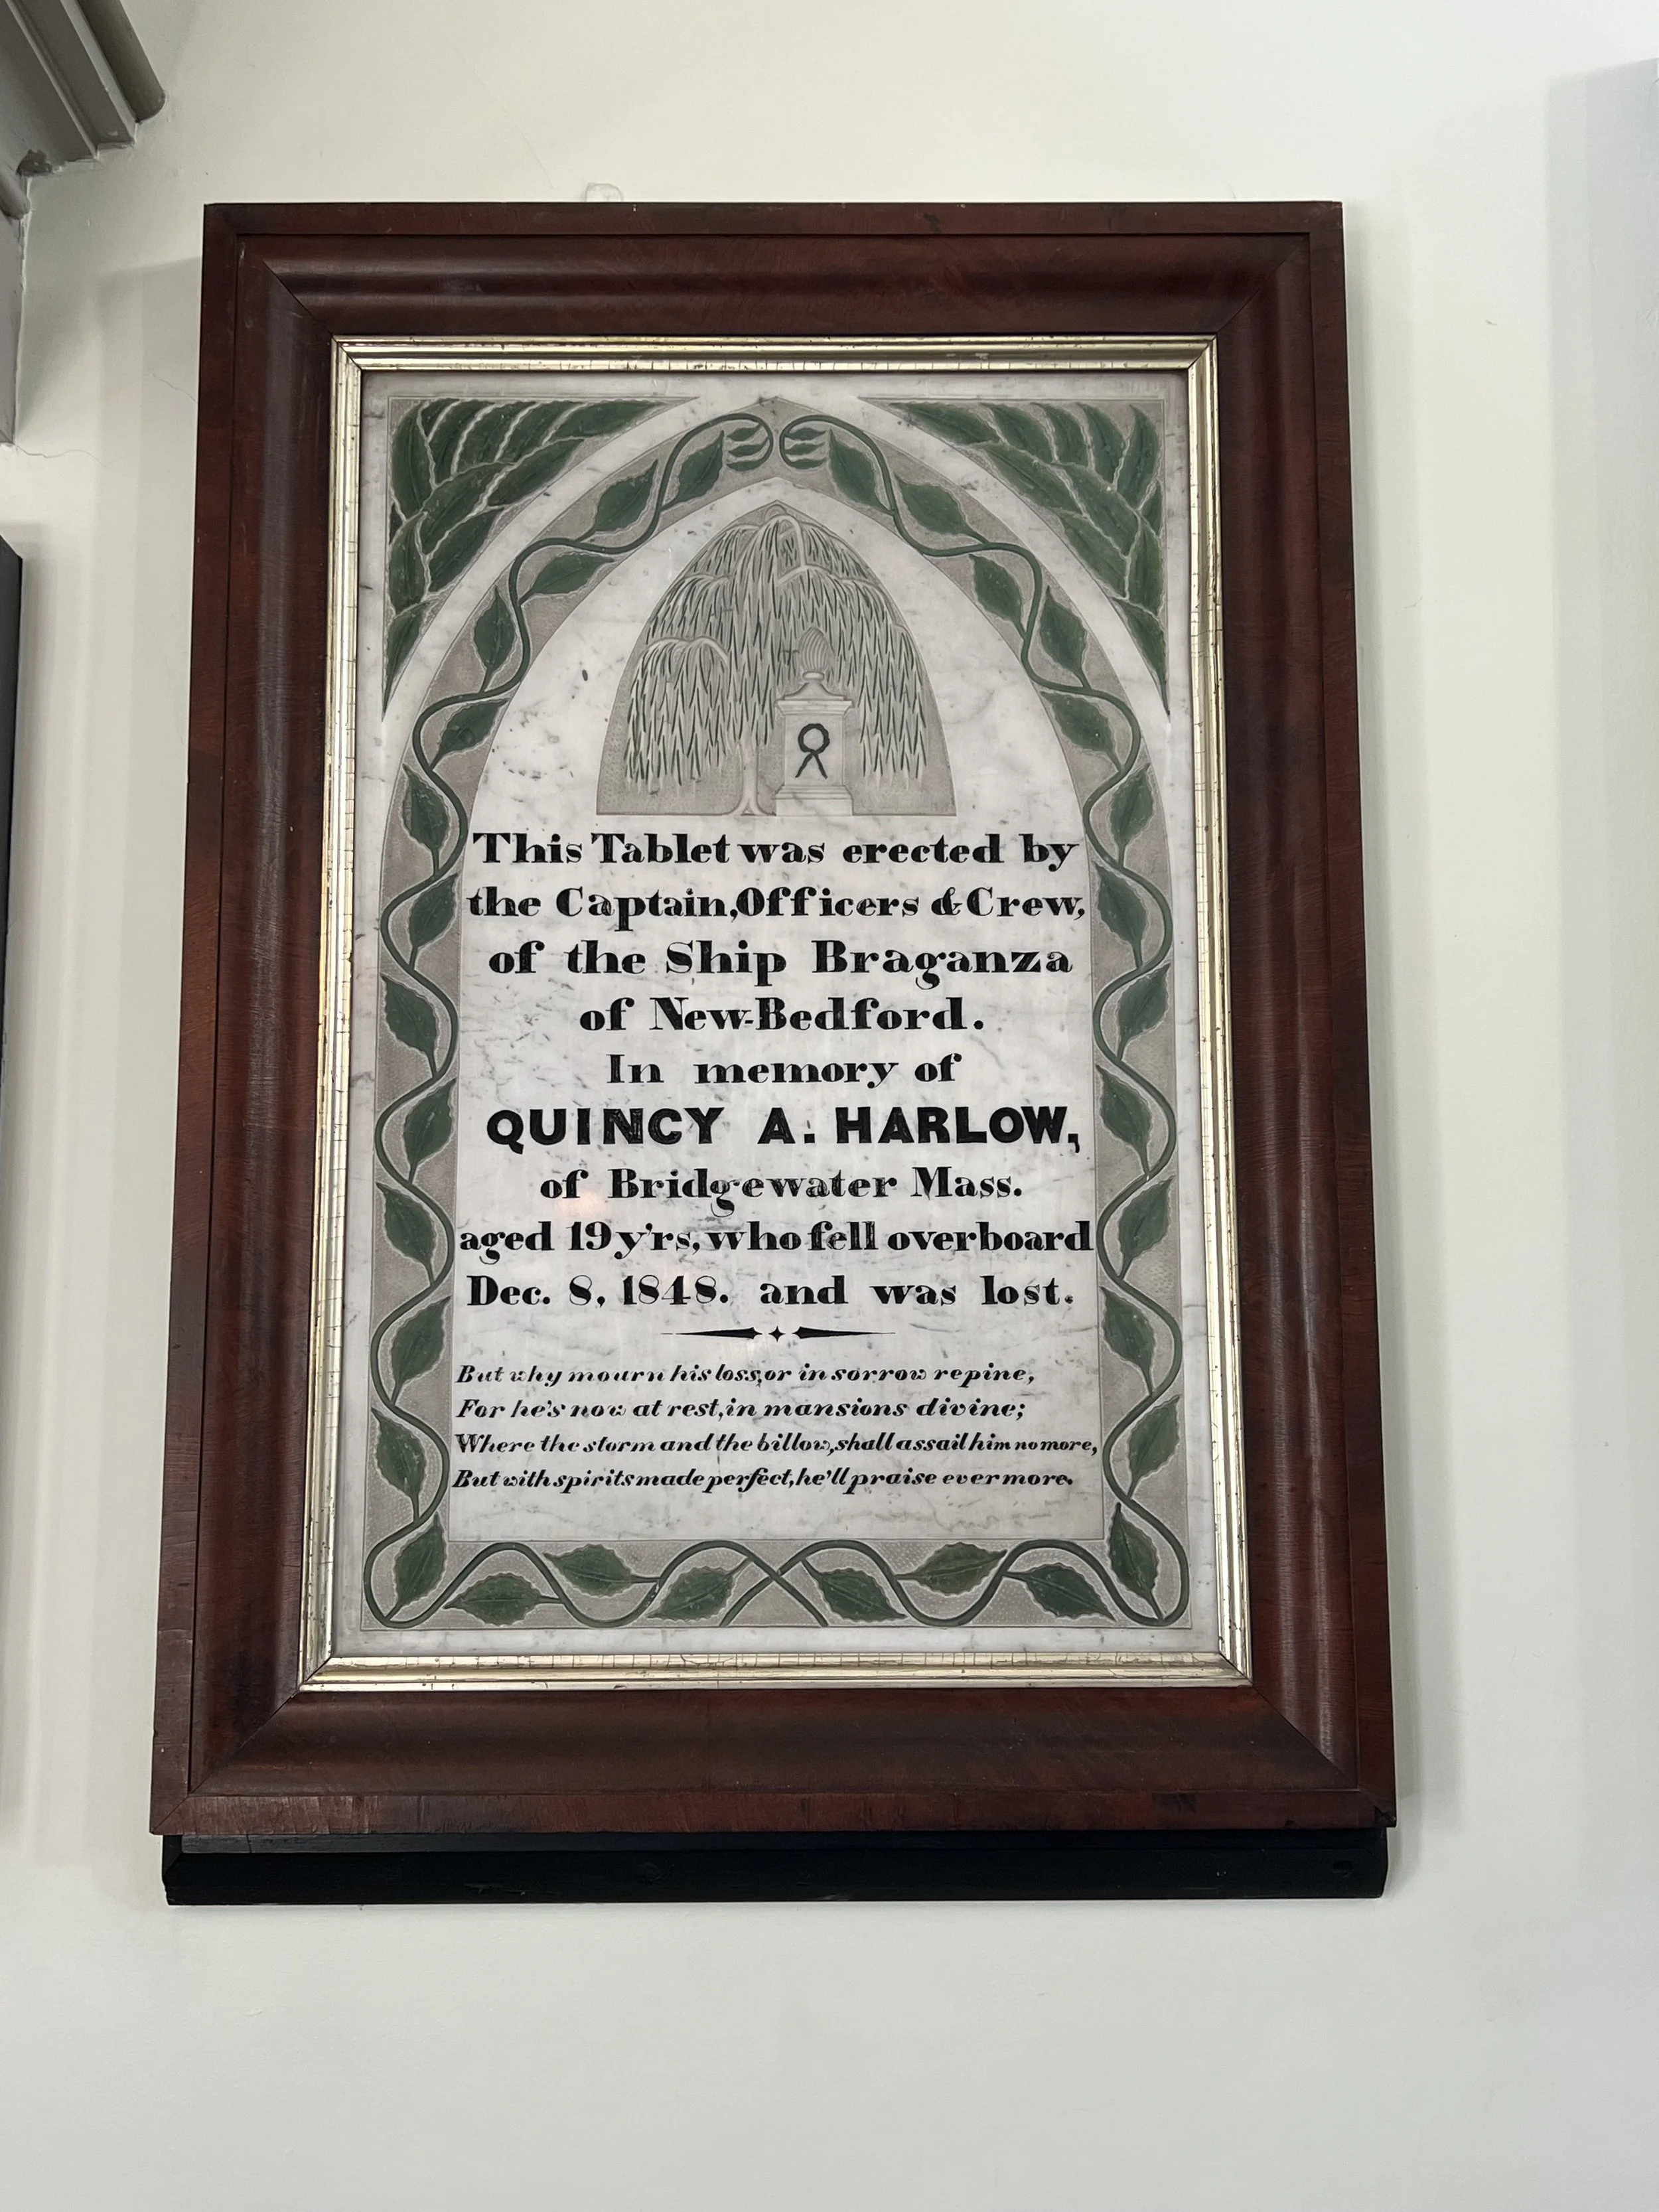 This Tablet was erected by
the Captain, Officers & Crew,
of the Ship Braganza
of New-Bedford.
In memory of
QUINCY A. HARLOW,
of Bridgewater Mass.
aged 19 y'rs, who fell overboard
Dec. 8, 1848. and was lost.
But why mourn his loss, or in sorrow repine,
For he's now at rest, in mansions divine;
Where the storm and the billow, shall assail him no more,
But with spirits made perfect, he'll praise evermore.